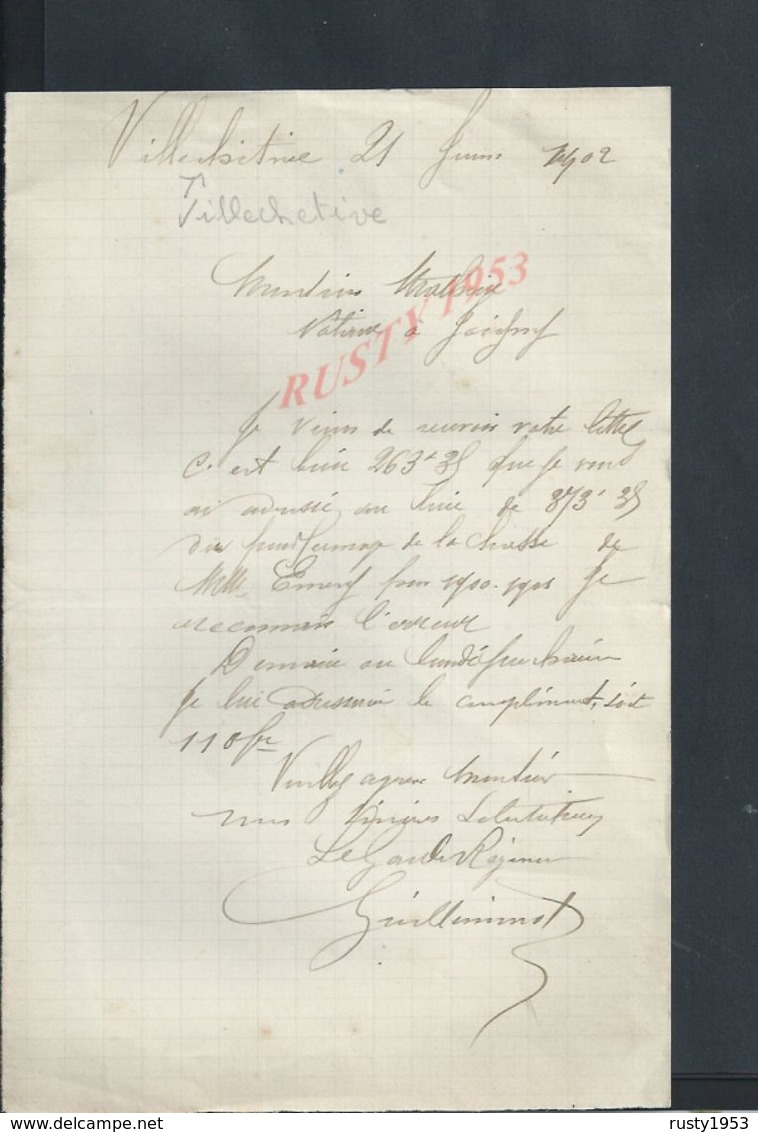 Villechétive 21 Juin 1902
Villechetive
Monsieur
Notaire à Joigny
RUSTY 1953
Je viens de recevoir votre lettre
C'est bien 263f 35 que je vous
ai adressé au lieu de 373f 35
de la chasse de
Mlle Emery pour 1900-1901 Je
reconnais l'erreur
Demain ou lundi prochain
je lui adresserai le complément, soit
110 fr
Veuillez agréer Monsieur
mes sincères Salutations
Le Garde Régisseur
Guilleminot
rusty1953